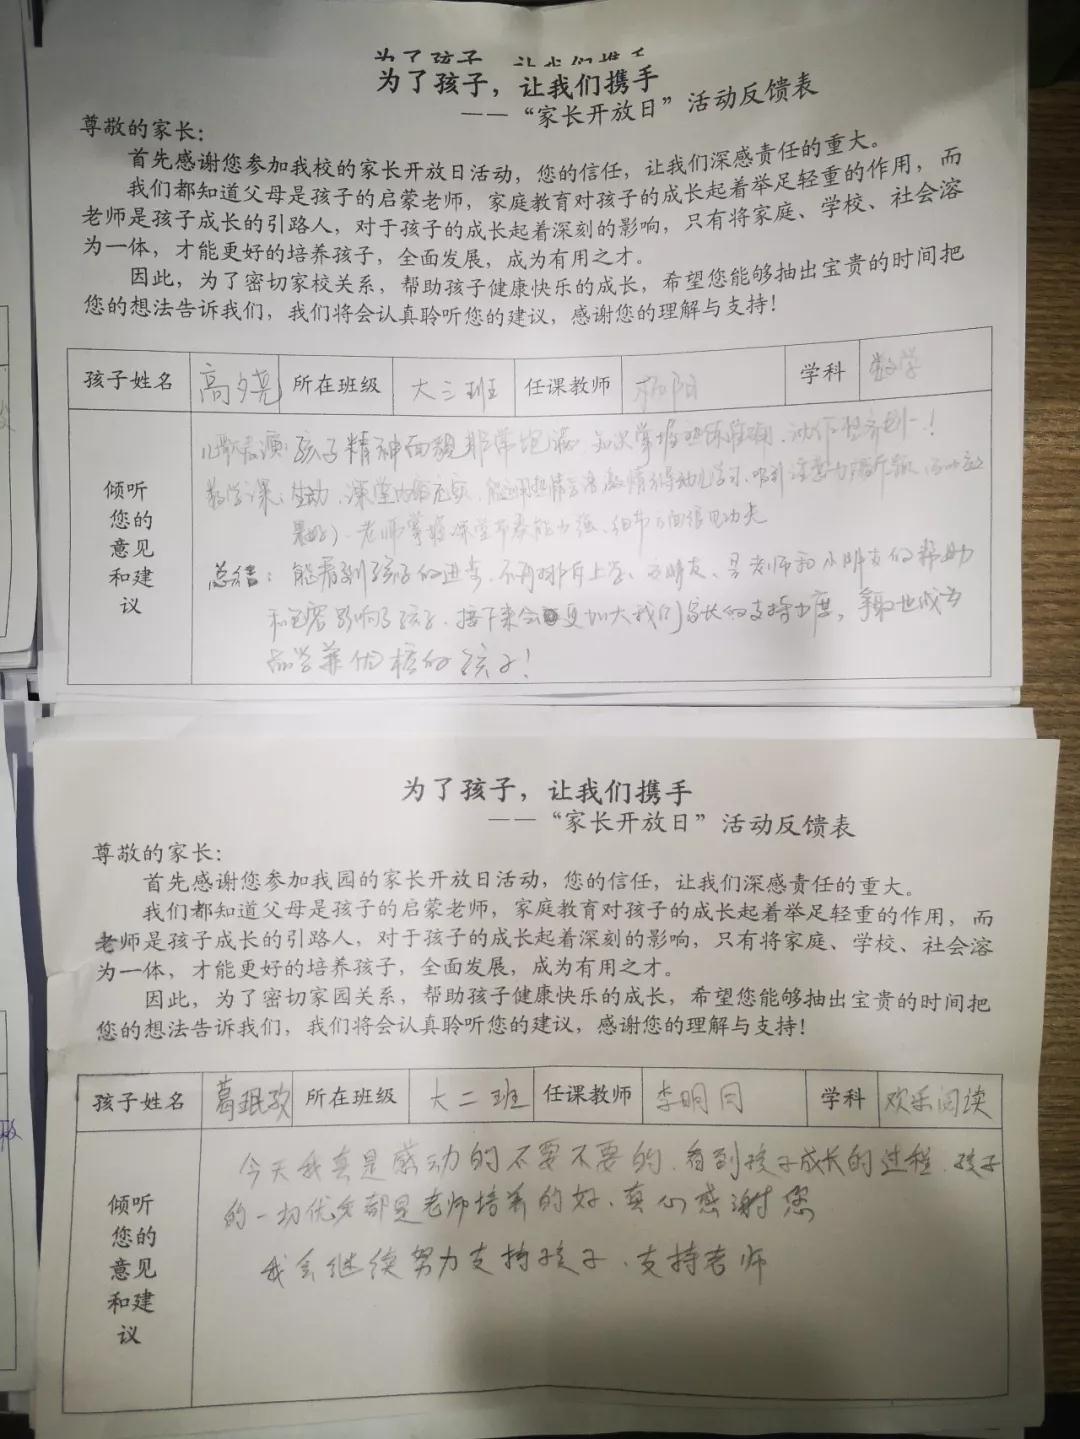 为了孩子，让我们携手
为了孩子，让我们携手
——“家长开放日”活动反馈表
尊敬的家长：
首先感谢您参加我校的家长开放日活动，您的信任，让我们深感责任的重大。
我们都知道父母是孩子的启蒙老师，家庭教育对孩子的成长起着举足轻重的作用，而
老师是孩子成长的引路人，对于孩子的成长起着深刻的影响，只有将家庭、学校、社会溶
为一体，才能更好的培养孩子，全面发展，成为有用之才。
因此，为了密切家校关系，帮助孩子健康快乐的成长，希望您能够抽出宝贵的时间把
您的想法告诉我们，我们将会认真聆听您的建议，感谢您的理解与支持！
孩子姓名 高夕尧 所在班级 大三班 任课教师 学科 数学
倾听
您的
意见
和建
议
儿歌表演：孩子精神面貌非常饱满、知识掌握熟练准确、动作整齐划一！
数学课：生动、课堂内容充实、
老师掌握课堂节奏能力强、细节方面很见功夫
总结：能看到孩子的进步、不再排斥上学、是老师和小朋友的帮助
和包容影响了孩子、接下来会更加大我们家长的支持力度，争取也成为
品学兼优 的孩子！
为了孩子，让我们携手
——“家长开放日”活动反馈表
尊敬的家长：
首先感谢您参加我园的家长开放日活动，您的信任，让我们深感责任的重大。
我们都知道父母是孩子的启蒙老师，家庭教育对孩子的成长起着举足轻重的作用，而
老师是孩子成长的引路人，对于孩子的成长起着深刻的影响，只有将家庭、学校、社会溶
为一体，才能更好的培养孩子，全面发展，成为有用之才。
因此，为了密切家园关系，帮助孩子健康快乐的成长，希望您能够抽出宝贵的时间把
您的想法告诉我们，我们将会认真聆听您的建议，感谢您的理解与支持！
孩子姓名 葛珉孜 所在班级 大二班 任课教师 李明月 学科 欢乐阅读
倾听
您的
意见
和建
议
今天我真是感动的不要不要的、看到孩子成长的过程、孩子
的一切优秀都是老师培养的好、真心感谢您
我会继续努力支持孩子、支持老师